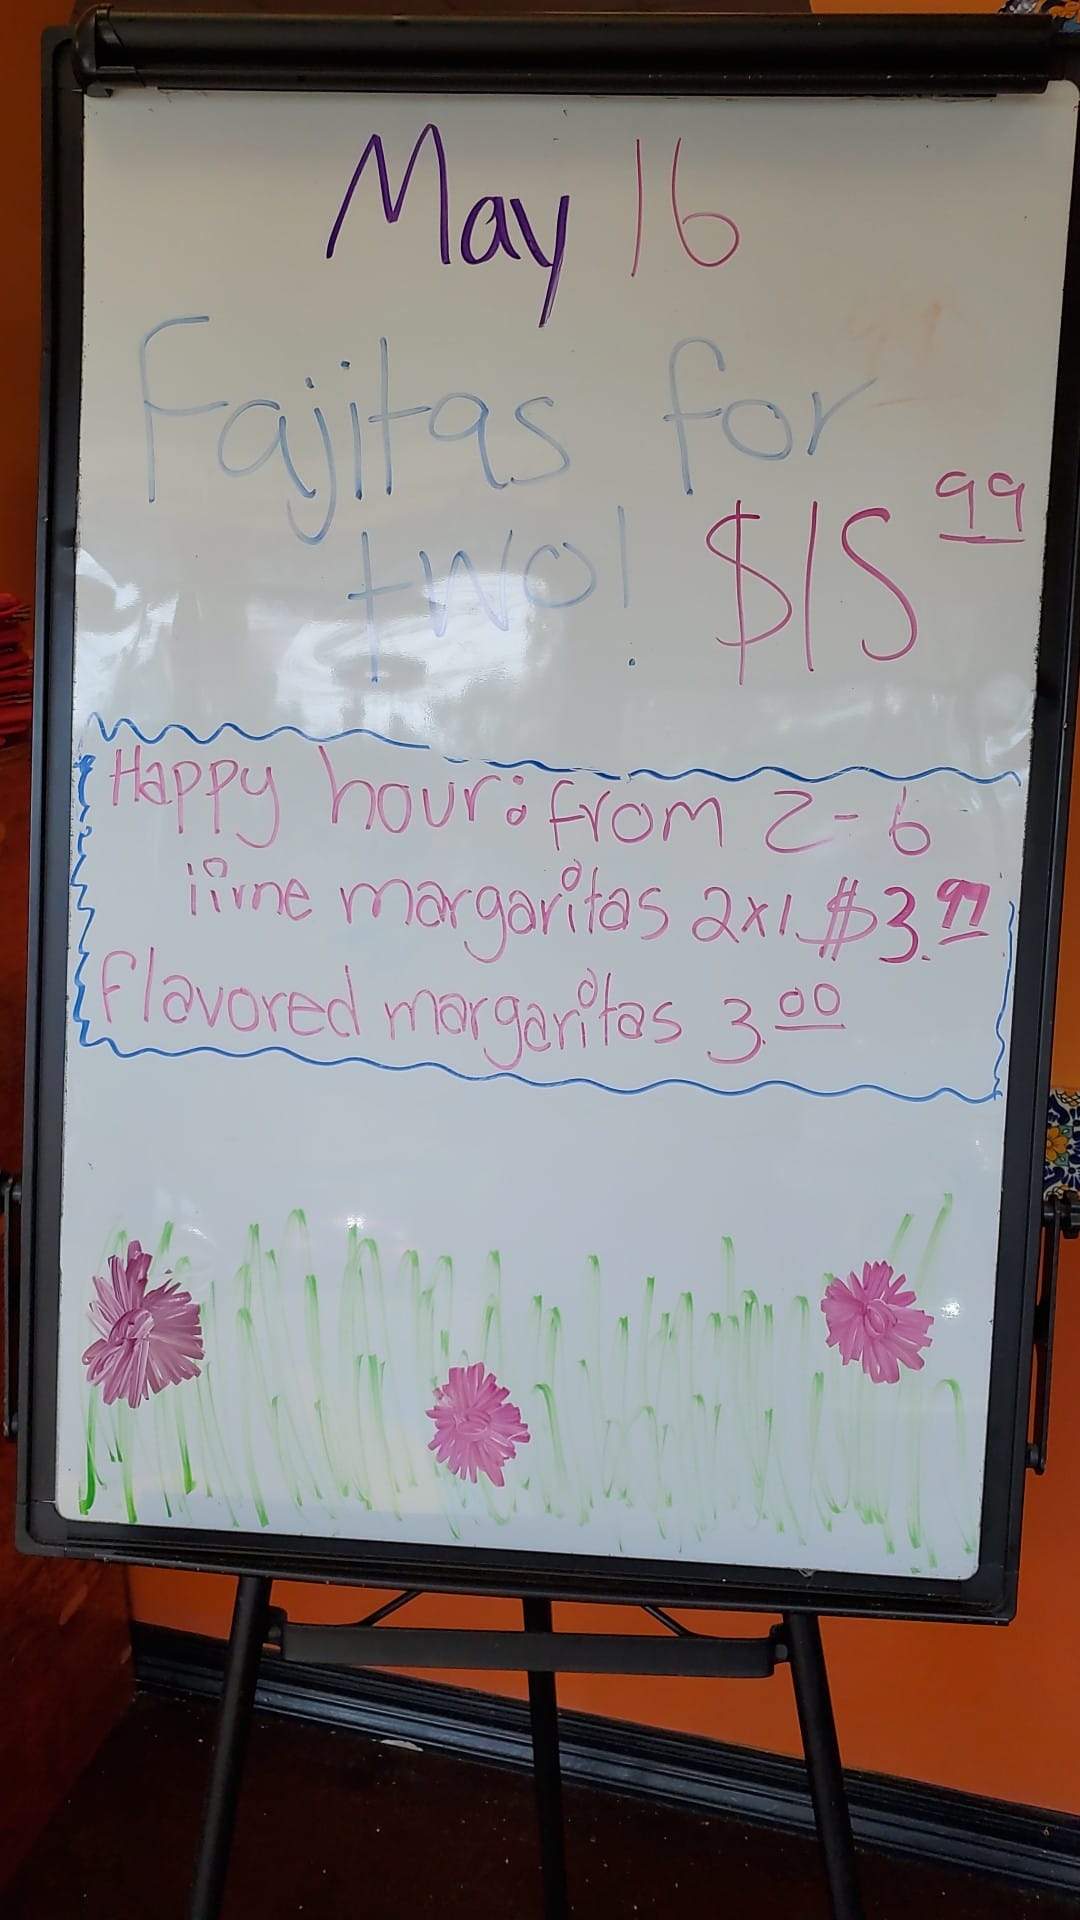 May 16
Fajitas for
two! $15.99
Happy hour: from 2-6
lime margaritas 2x1 $3.99
flavored margaritas 3.00